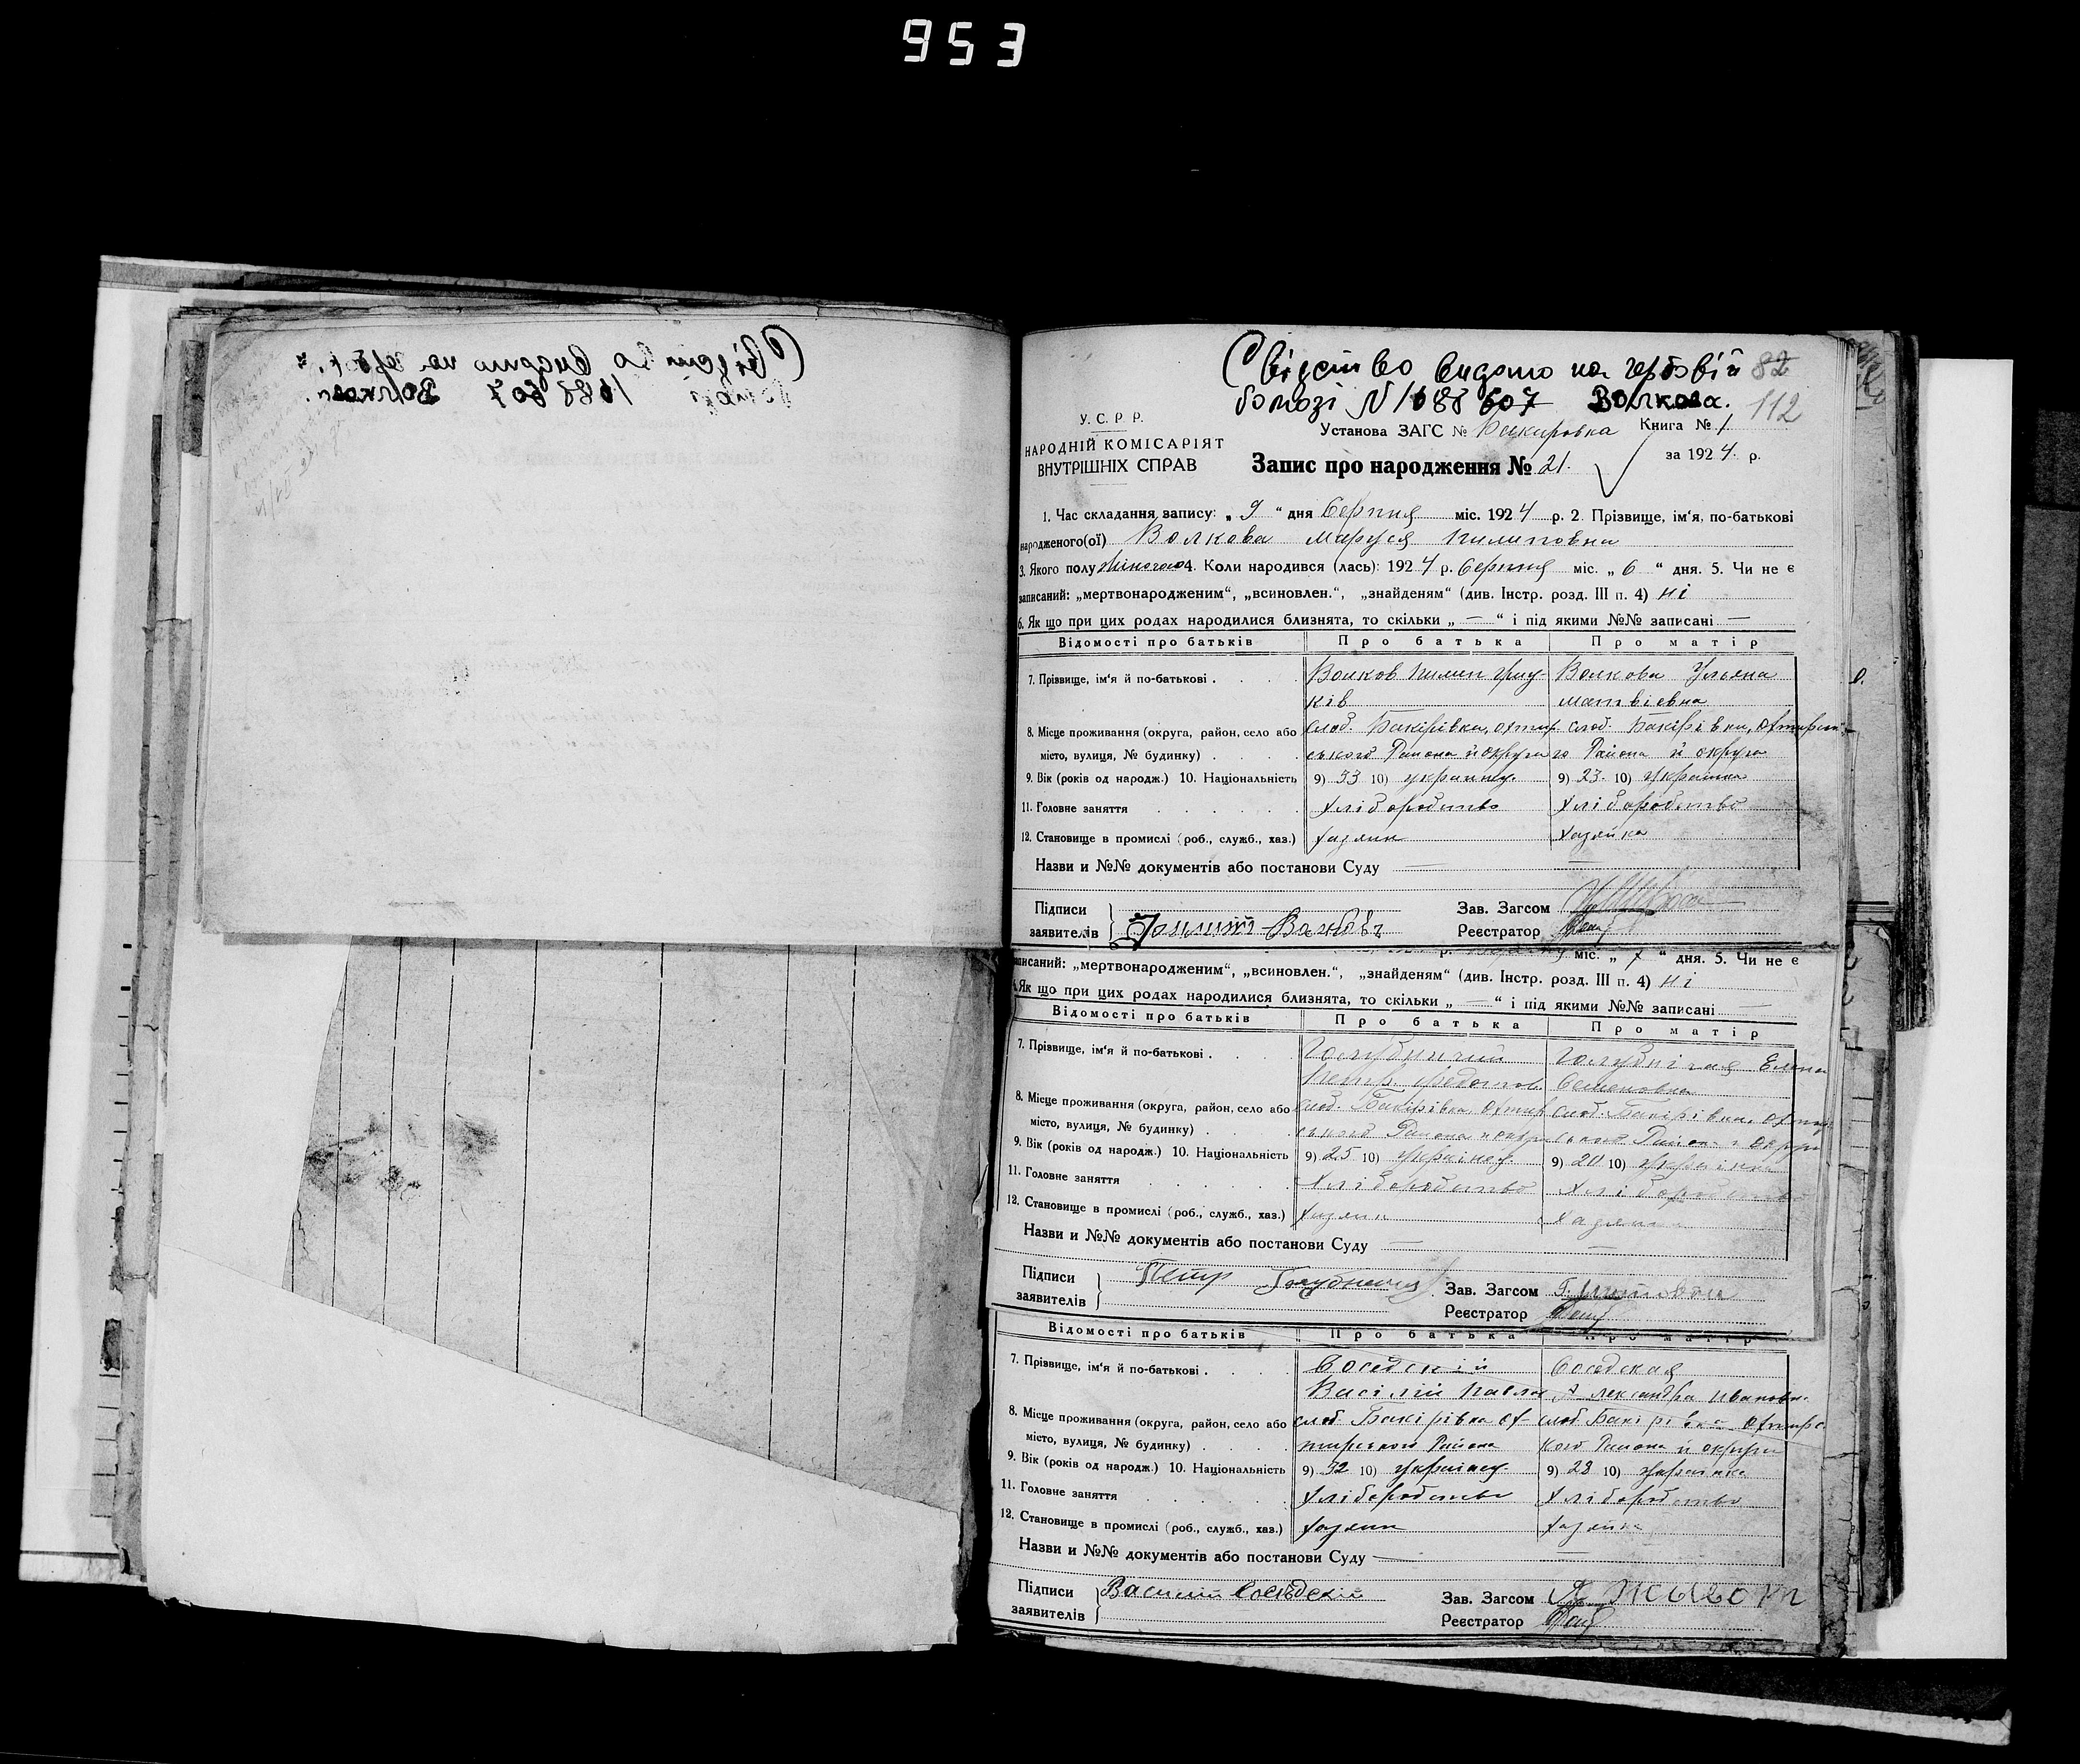 953
Свідство видано на гербовій 82
бомазі N 1688 607 Волкова. 112
У. С. Р. Р.
НАРОДНІЙ КОМІСАРІЯТ
ВНУТРІШНІХ СПРАВ
Установа ЗАГС № Бакировка Книга № 1
Запис про народження № 21. за 1924 р.
1. Час складання запису: „ 9 “ дня Серпня міс. 1924 р. 2. Прізвище, ім'я, по-батькові
народженого(ої) Волкова Маруся Пилиповна
3. Якого полу жіночого 4. Коли народився (лась): 1924 р. Серпня міс. „ 6 “ дня. 5. Чи не є
записаний: „мертвонародженим“, „всиновлен.“, „знайденям“ (див. Інстр. розд. III п. 4) ні
6. Як що при цих родах народилися близнята, то скільки „ — “ і під якими №№ записані —
Відомості про батьків Про батька Про матір
7. Прізвище, ім'я й по-батькові . Волков Пилип Волкова Ульяна
ків Матвієвна
8. Місце проживання (округа, район, село або слоб. Бакірівка, Охтир слоб. Бакірівка, Охтирсько
місто, вулиця, № будинку) ського Району й округи го Району й округи
9. Вік (років од народж.) 10. Національність 9) 33 10) українец 9) 23. 10) українка
11. Головне заняття хліборобство хліборобство
12. Становище в промислі (роб., служб., хаз.) хазяин хазяйка
Назви и №№ документів або постанови Суду —
Підписи Зав. Загсом
заявителів Реєстратор
міс. „ 7 “ дня. 5. Чи не є
записаний: „мертвонародженим“, „всиновлен.“, „знайденям“ (див. Інстр. розд. III п. 4) ні
6. Як що при цих родах народилися близнята, то скільки „ — “ і під якими №№ записані
Відомості про батьків Про батька Про матір
7. Прізвище, ім'я й по-батькові . Голубничий Голубнічая Елена
Петр Федотов. Семеновна
8. Місце проживання (округа, район, село або слоб. Бакірівка Охтир слоб. Бакірівка, Охтир
місто, вулиця, № будинку) ського Району й округи ського Району й округи
9. Вік (років од народж.) 10. Національність 9) 25 10) українец 9) 20 10) українка
11. Головне заняття хліборобство хліборобство
12. Становище в промислі (роб., служб., хаз.) хазяин хазяйка
Назви и №№ документів або постанови Суду —
Підписи Петр Голубничий Зав. Загсом
заявителів Реєстратор
Відомості про батьків Про батька Про матір
7. Прізвище, ім'я й по-батькові . Соседскій Соседская
Васілій Павло Александра Ивановн.
8. Місце проживання (округа, район, село або слоб. Бакірівка Ох- слоб. Бакірівка Охтирс
місто, вулиця, № будинку) тирського Району кого Району й округи
9. Вік (років од народж.) 10. Національність 9) 32 10) українец 9) 28 10) українка
11. Головне заняття хліборобство хліборобство
12. Становище в промислі (роб., служб., хаз.) хазяин хазяйка
Назви и №№ документів або постанови Суду —
Підписи Василий Соседский Зав. Загсом
заявителів Реєстратор